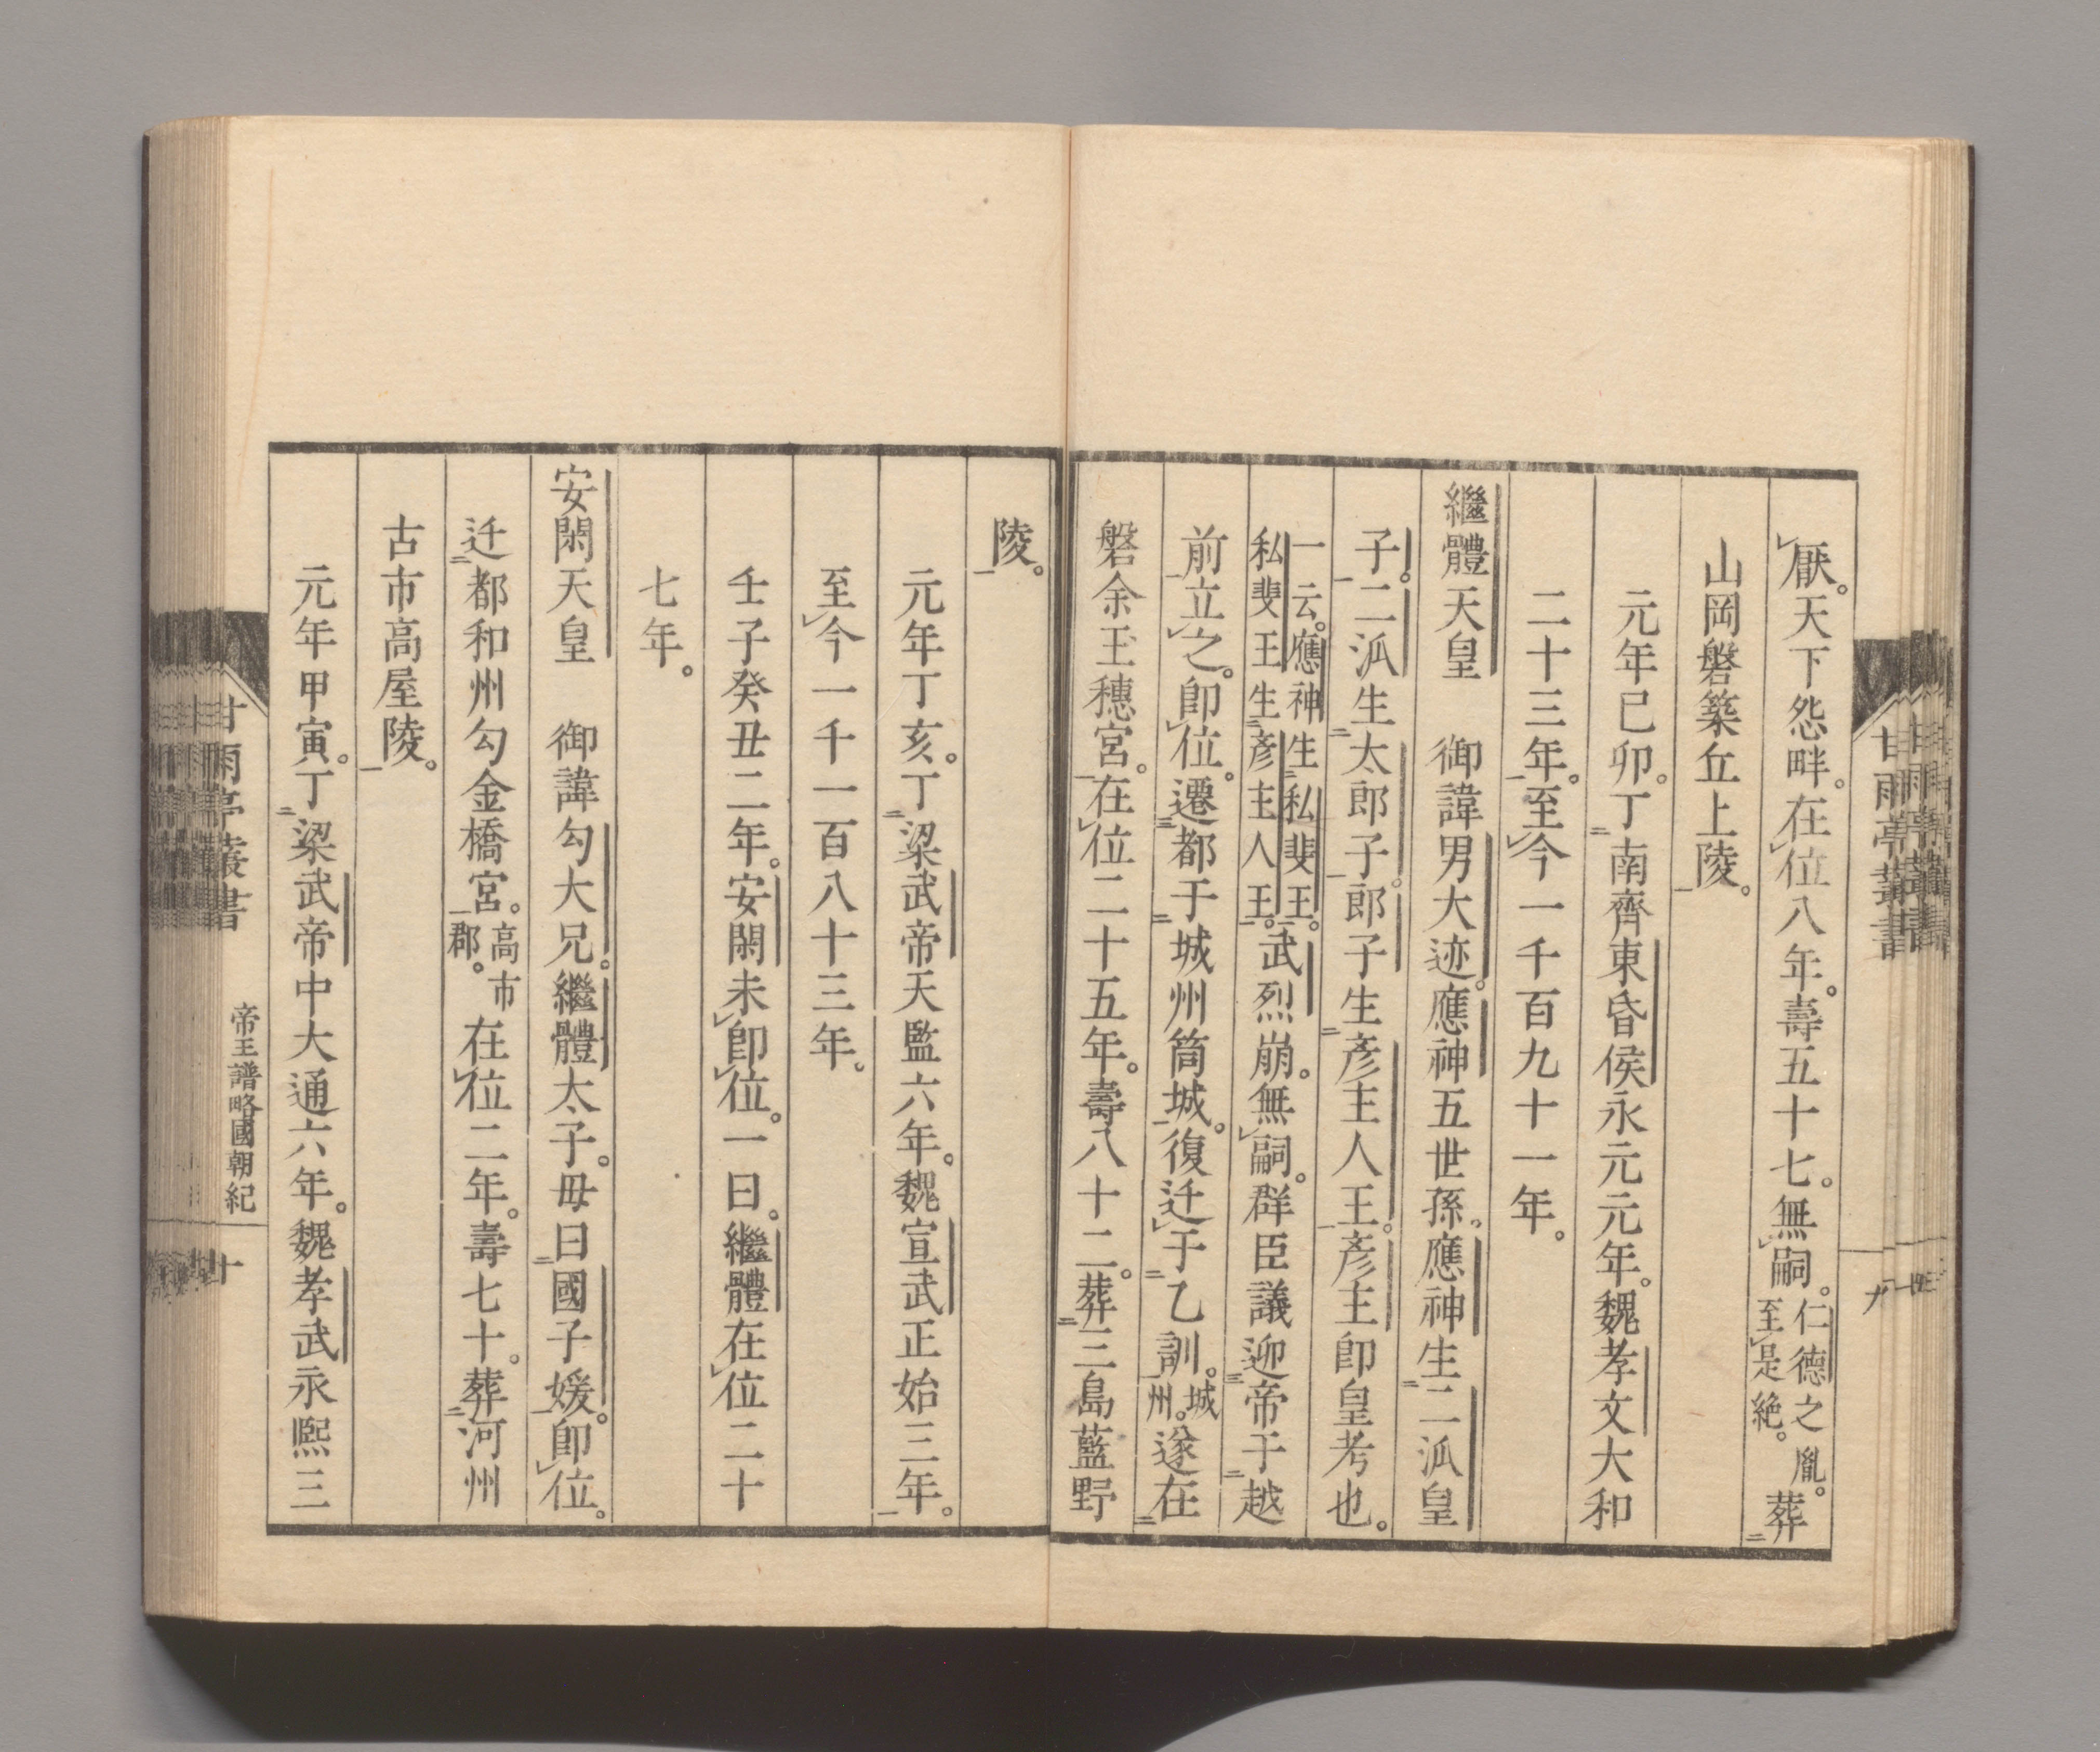 厭。天下怨畔。在位八年。壽五十七。無嗣。仁德之胤。至是絶。葬
山岡磐築丘上陵。
元年已卯。丁南齊東昏侯永元元年。魏孝文大和
二十三年。至今一千百九十一年。
繼體天皇 御諱男大迹。應神五世孫。應神生二泒皇
子。二泒生太郎子。郎子生彦主人王。彦主卽皇考也。
一云。應神生私斐王。私斐王生彦主人王。武烈崩。無嗣。群臣議迎帝于越
前立之。卽位。遷都于城州筒城。復迁于乙訓。城州。遂在
磐余玉穗宮。在位二十五年。壽八十二。葬三島藍野
陵。
元年丁亥。丁梁武帝天監六年。魏宣武正始三年。
至今一千一百八十三年。
壬子癸丑二年。安閑未卽位。一曰。繼體在位二十
七年。
安閑天皇 御諱勾大兄。繼體太子。毋曰國子媛。卽位。
迁都和州勾金橋宮。高市郡。在位二年。壽七十。葬河州
古市高屋陵。
元年甲寅。丁梁武帝中大通六年。魏孝武永熙三
甘雨亭叢書
九
甘雨亭叢書
帝王譜略國朝紀
十